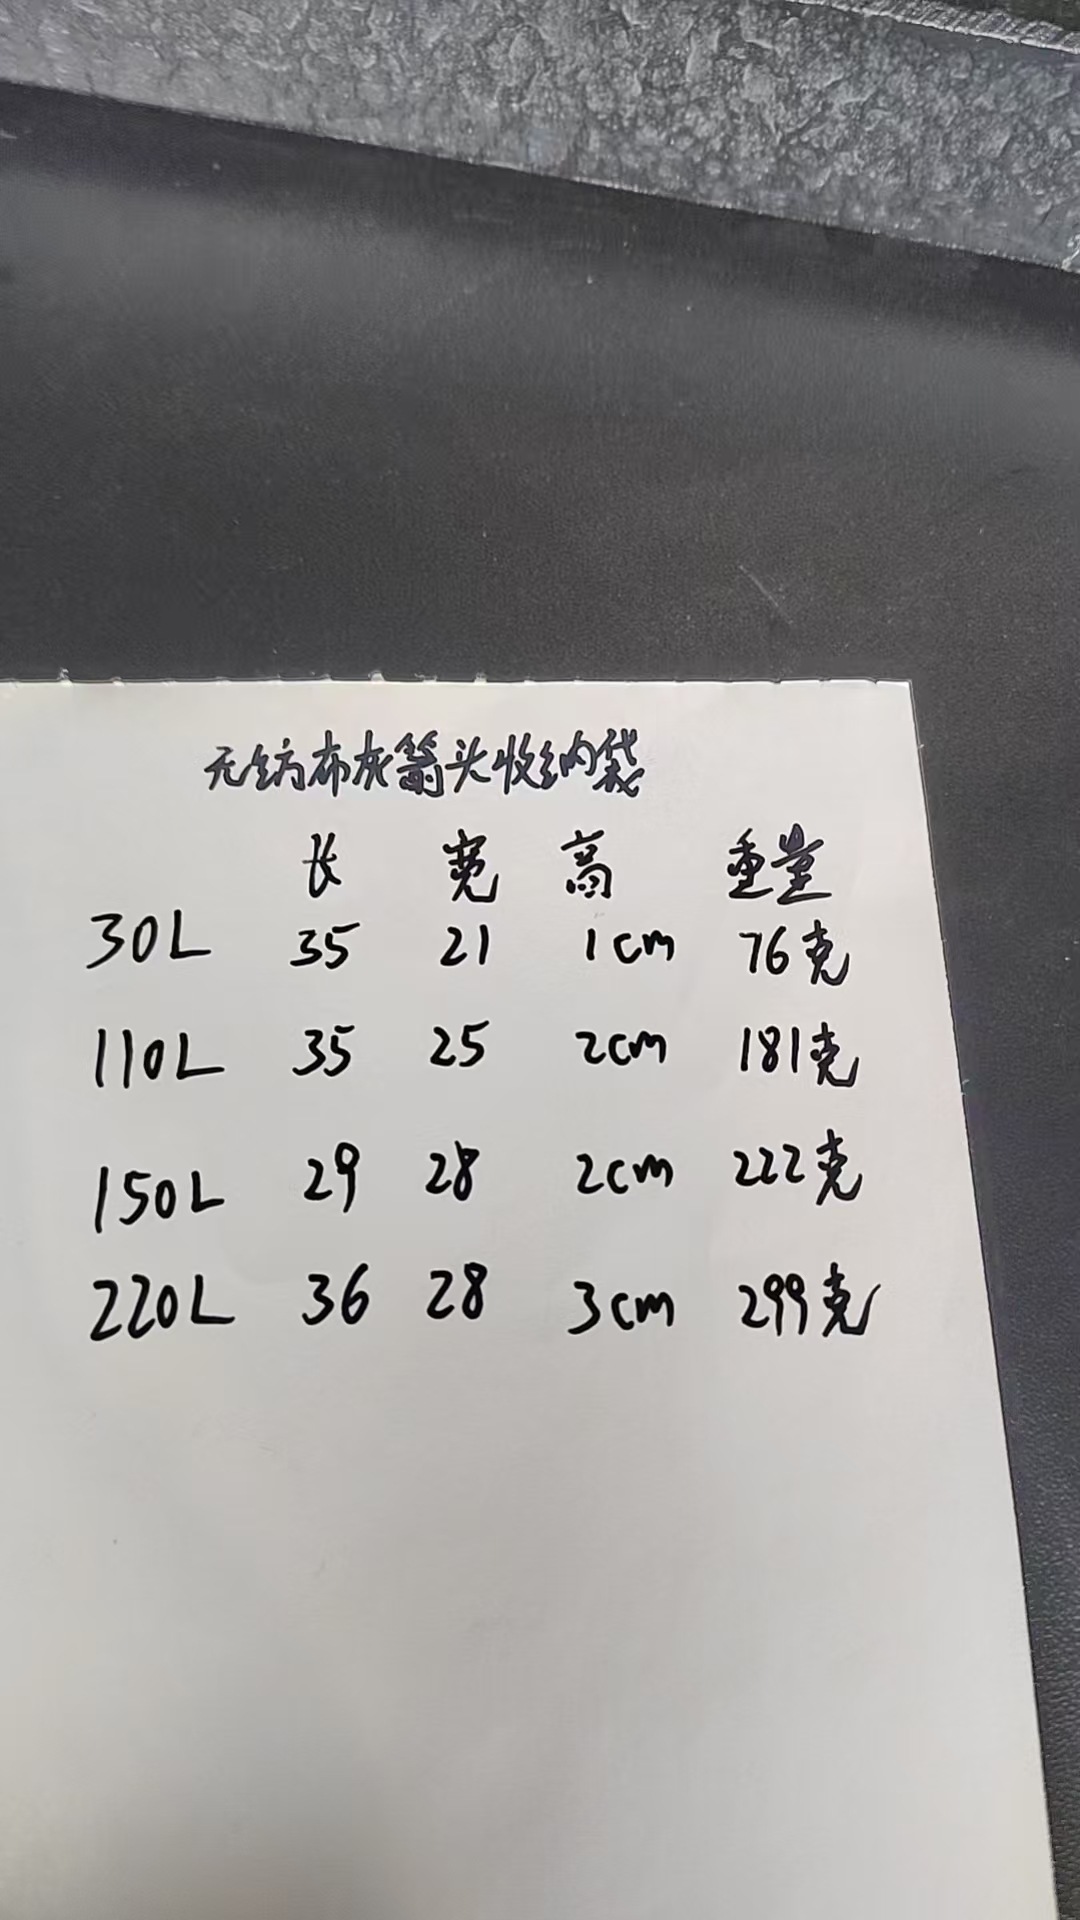 无纺布灰箭头收纳袋
长 宽 高 重量
30L 35 21 1cm 76克
110L 35 25 2cm 181克
150L 29 28 2cm 222克
220L 36 28 3cm 299克